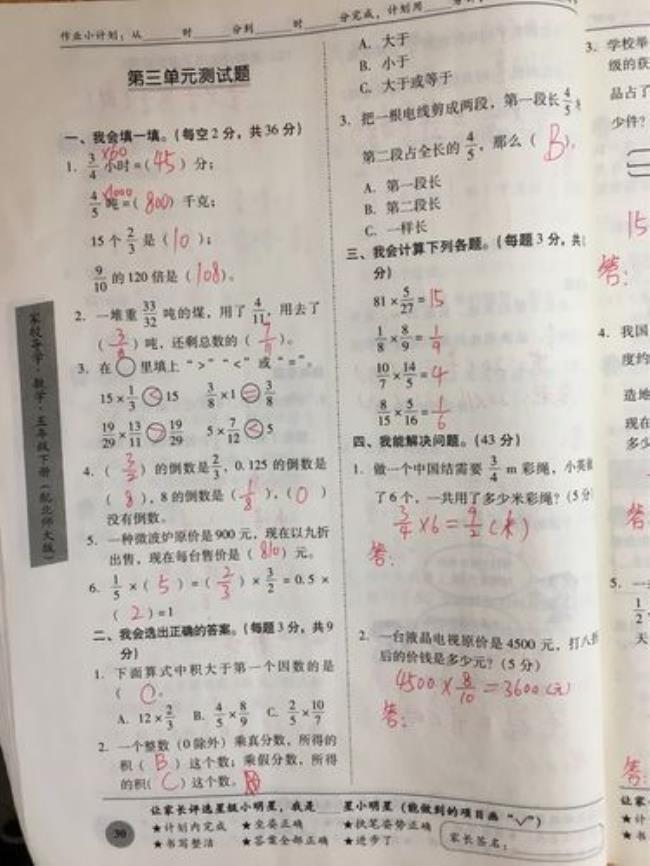 作业小计划：从 时 分到 时 分完成，计划用
第三单元测试题
一、我会填一填。（每空2分，共36分）
1. 3/4小时=（45）分； ×60
4/5吨=（800）千克； ×1000
15个2/3是（10）；
9/10的120倍是（108）。
2. 一堆重33/32吨的煤，用了4/11，用去了
（3/8）吨，还剩总数的（7/11）。
3. 在○里填上“>”“<”或“=”。
15×1/3 < 15 3/8×1 = 3/8
19/29×13/11 > 19/29 5×7/12 < 5
4.（3/2）的倒数是2/3，0.125的倒数是
（8），8的倒数是（1/8），（0）
没有倒数。
5. 一种微波炉原价是900元，现在以九折
出售，现在每台售价是（810）元。
6. 1/5×（5）=（2/3）×3/2=0.5×
（2）=1
二、我会选出正确的答案。（每题3分，共9
分）
1. 下面算式中积大于第一个因数的是
（C。
A. 12×2/3 B. 4/5×8/9 C. 2/5×10/7
2. 一个整数（0除外）乘真分数，所得的
积（B）这个数；乘假分数，所得
的积（C）这个数。
A. 大于
B. 小于
C. 大于或等于
3. 把一根电线剪成两段，第一段长4/5
第二段占全长的4/5，那么（B）。
A. 第一段长
B. 第二段长
C. 一样长
三、我会计算下列各题。（每题3分，共
分）
81×5/27=15
1/8×8/9=1/9
10/7×14/5=4
8/15×5/16=1/6
四、我能解决问题。（43分）
1. 做一个中国结需要3/4 m彩绳，小英
了6个，一共用了多少米彩绳？（5分
3/4×6=9/2（米）
答：
2. 一台液晶电视原价是4500元，打八折
后的价钱是多少元？（5分）
4500×8/10=3600（元）
答：
3. 学校举
级的获
品占了
少件？
15
答：
4. 我国
度约
造地
现在
多少
答
5. 一
1/2
天
答：
家校导学·数学·五年级下册（配北师大版）
让家长评选星级小明星，我是 星小明星（能做到的项目画“√”）
★计划内完成 ★坐姿正确 ★执笔姿势正确
★书写整洁 ★答案全部正确 ★进步了
家长签名：
30
让家
★计
★书